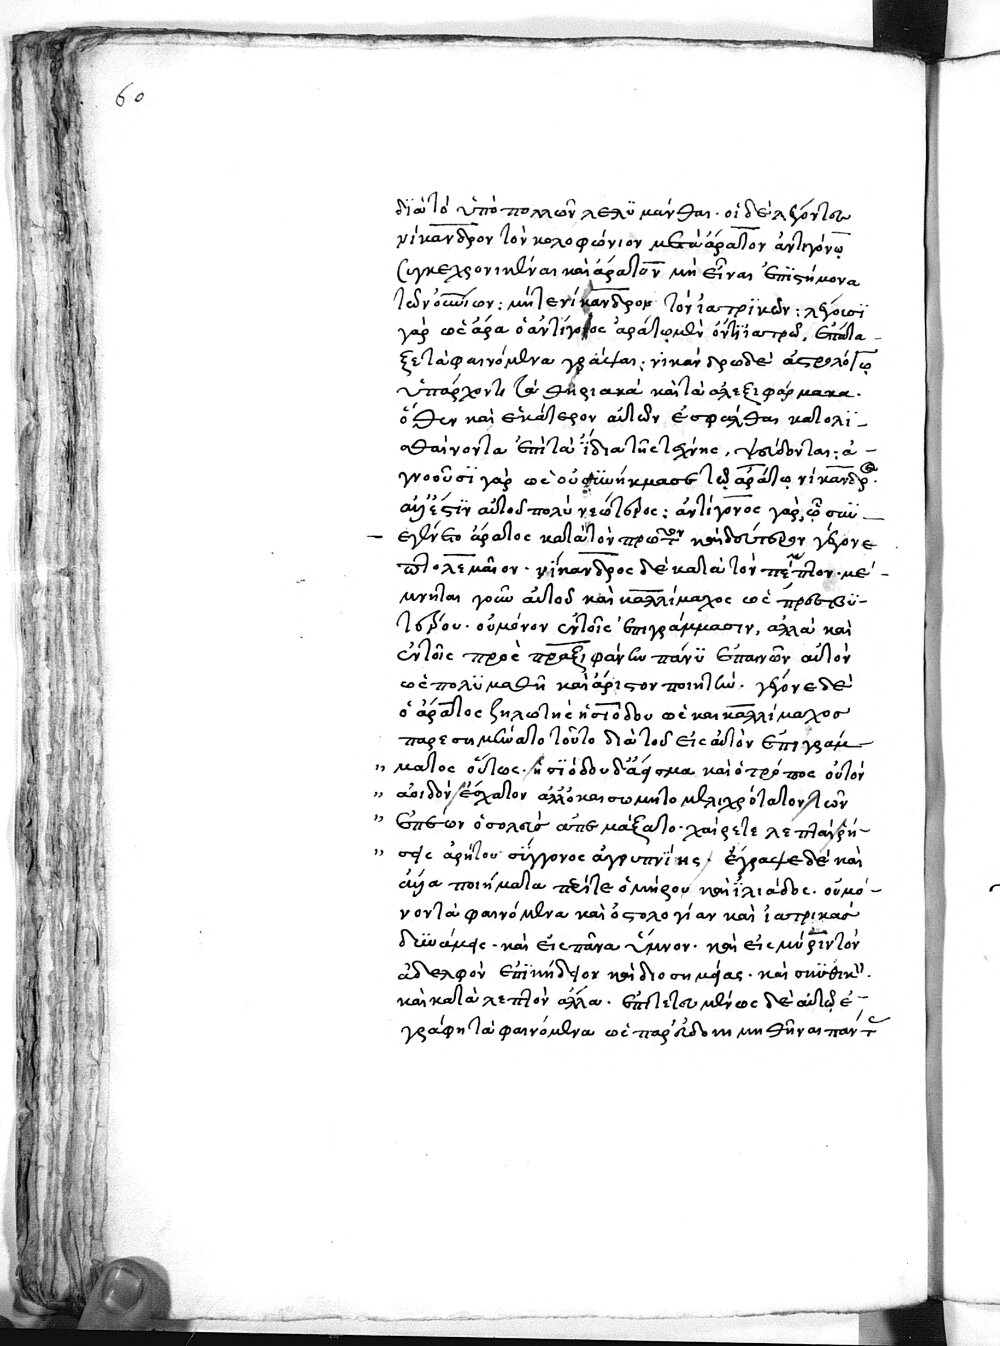 60
διὰ τὸ ὑπὸ πολλῶν λελυμάνθαι· οἱ δὲ λέγοντες
νίκανδρον τὸν κολοφώνιον μετὰ ἀράτου ἀντιγόνῳ
συγκεχρονικέναι καὶ ἄρατον μὴ εἶναι ἐπιστήμονα
τῶν οὐρανίων· μήτε νίκανδρον τῶν ἰατρικῶν· λέγουσι
γὰρ ὡς ἄρα ὁ ἀντίγονος ἀράτῳ μὲν ὄντι ἰατρῷ, ἐπέτα-
ξε τὰ φαινόμενα γράψαι· νικάνδρῳ δὲ ἀστρολόγῳ
ὑπάρχοντι τὰ θηριακὰ καὶ τὰ ἀλεξιφάρμακα·
ὅθεν καὶ ἑκάτερον αὐτῶν ἐσφάλθαι κατολι-
σθαίνοντα ἐπὶ τὰ ἴδια τῆς τέχνης, ψεύδονται· ἀ-
γνοοῦσι γὰρ ὡς οὐ συνήκμασε τῷ ἀράτῳ νίκανδρος·
ἀλλ' ἔστιν αὐτοῦ πολὺ νεώτερος· ἀντίγονος γὰρ, ᾧ συν
εγένετο ἄρατος κατὰ τὸν πρῶτον καὶ δεύτερον γέγονε
πτολεμαῖον· νίκανδρος δὲ κατὰ τὸν πέμπτον· μέ-
μνηται γοῦν αὐτοῦ καὶ καλλίμαχος ὡς πρεσβυ-
τέρου· οὐ μόνον ἐν τοῖς ἐπιγράμμασιν, ἀλλὰ καὶ
ἐν τοῖς πρὸς πραξιφάνην πάνυ ἐπαινῶν αὐτὸν
ὡς πολυμαθῆ καὶ ἄριστον ποιητήν· γέγονε δὲ
ὁ ἄρατος ζηλωτὴς ἡσιόδου ὡς καὶ καλλίμαχος
παρεσημήνατο τοῦτο διὰ τοῦ εἰς αὐτὸν ἐπιγράμ
" ματος οὕτως· ἡσιόδου δ' ἄεισμα καὶ ὁ τρόπος οὐ τὸν
" ἀοιδὸν ἔσχατον ἀλλ' ὀκαισωμητο μελιχρότατον τῶν
" ἐπέων ὁ σολεὺς ἀπεμάξατο· χαίρετε λεπταὶ ῥή-
" σεις ἀρήτου σύγγονος ἀγρυπνίης· ἔγραψε δὲ καὶ
ἄλλα ποιήματα περί τε ὁμήρου καὶ ἰλιάδος· οὐ μό-
νον τὰ φαινόμενα καὶ ὀστολογίαν καὶ ἰατρικὰς
δυνάμεις· καὶ εἰς πᾶνα ὕμνον· καὶ εἰς μύριν τὸν
ἀδελφὸν ἐπικήδειον καὶ διοσημείας· καὶ σκυθικὸν·
καὶ κατὰ λεπτὸν ἄλλα· ἐπιτετευγμένως δὲ αὐτῷ ἐ-
γράφη τὰ φαινόμενα ὡς παρευδοκιμηθῆναι πάντας